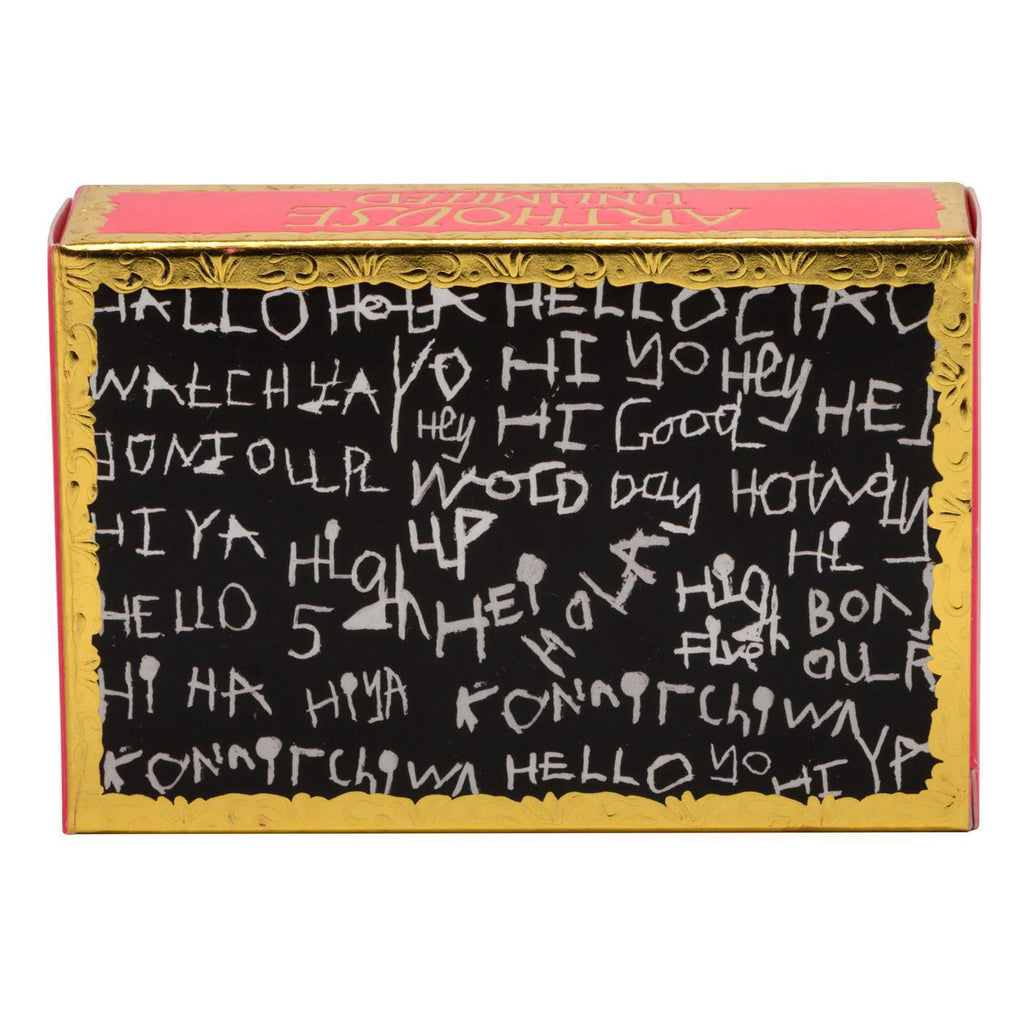 ARTHOUSE
UNLIMITED
HALLO HOLA HELLO CIAO
WATCHYA YO HI YO Hey
Hey HI Good HEJ
BONJOUR WORD Day HOWDY
HI YA High UP Hi
HELLO 5 HEi HOLA High BON
Fiveh OUR
Hi HA HiYA KONNAITCHiWA
KONNAITCHiWA HELLO yo HI YA